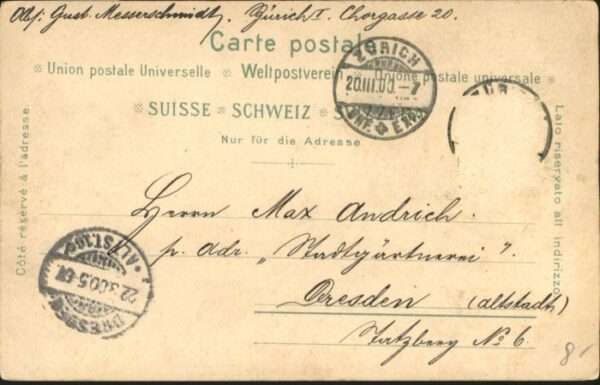 Abs: Gust. Messerschmidt, Zürich I. Chorgasse 20.
Carte postale
Union postale Universelle Weltpostverein Unione postale universale
SUISSE SCHWEIZ S
Nur für die Adresse
Côté réservé à l'adresse.
Lato riservato all' indirizzo
ZÜRICH
20.III.00.-7
BRF. EXP.
ZÜR
Herrn Max Andrich.
p. adr. „Stadtgärtnerei".
Dresden (altstadt)
Statzberg No 6
DRESDEN ALTST.
22.3.00.5-6N
8